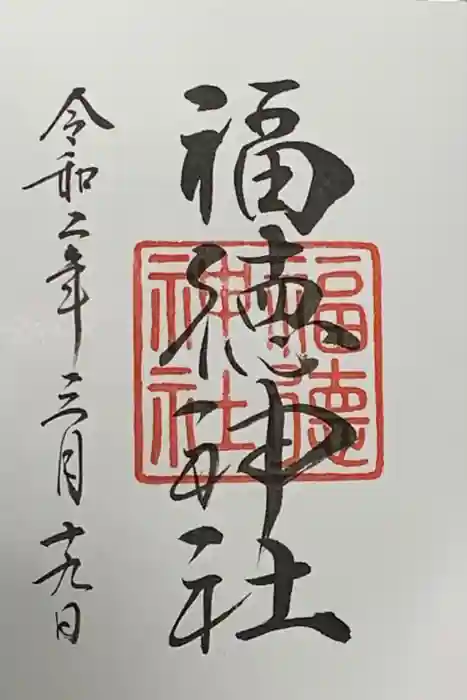 福徳神社
福徳神社
令和二年三月十九日